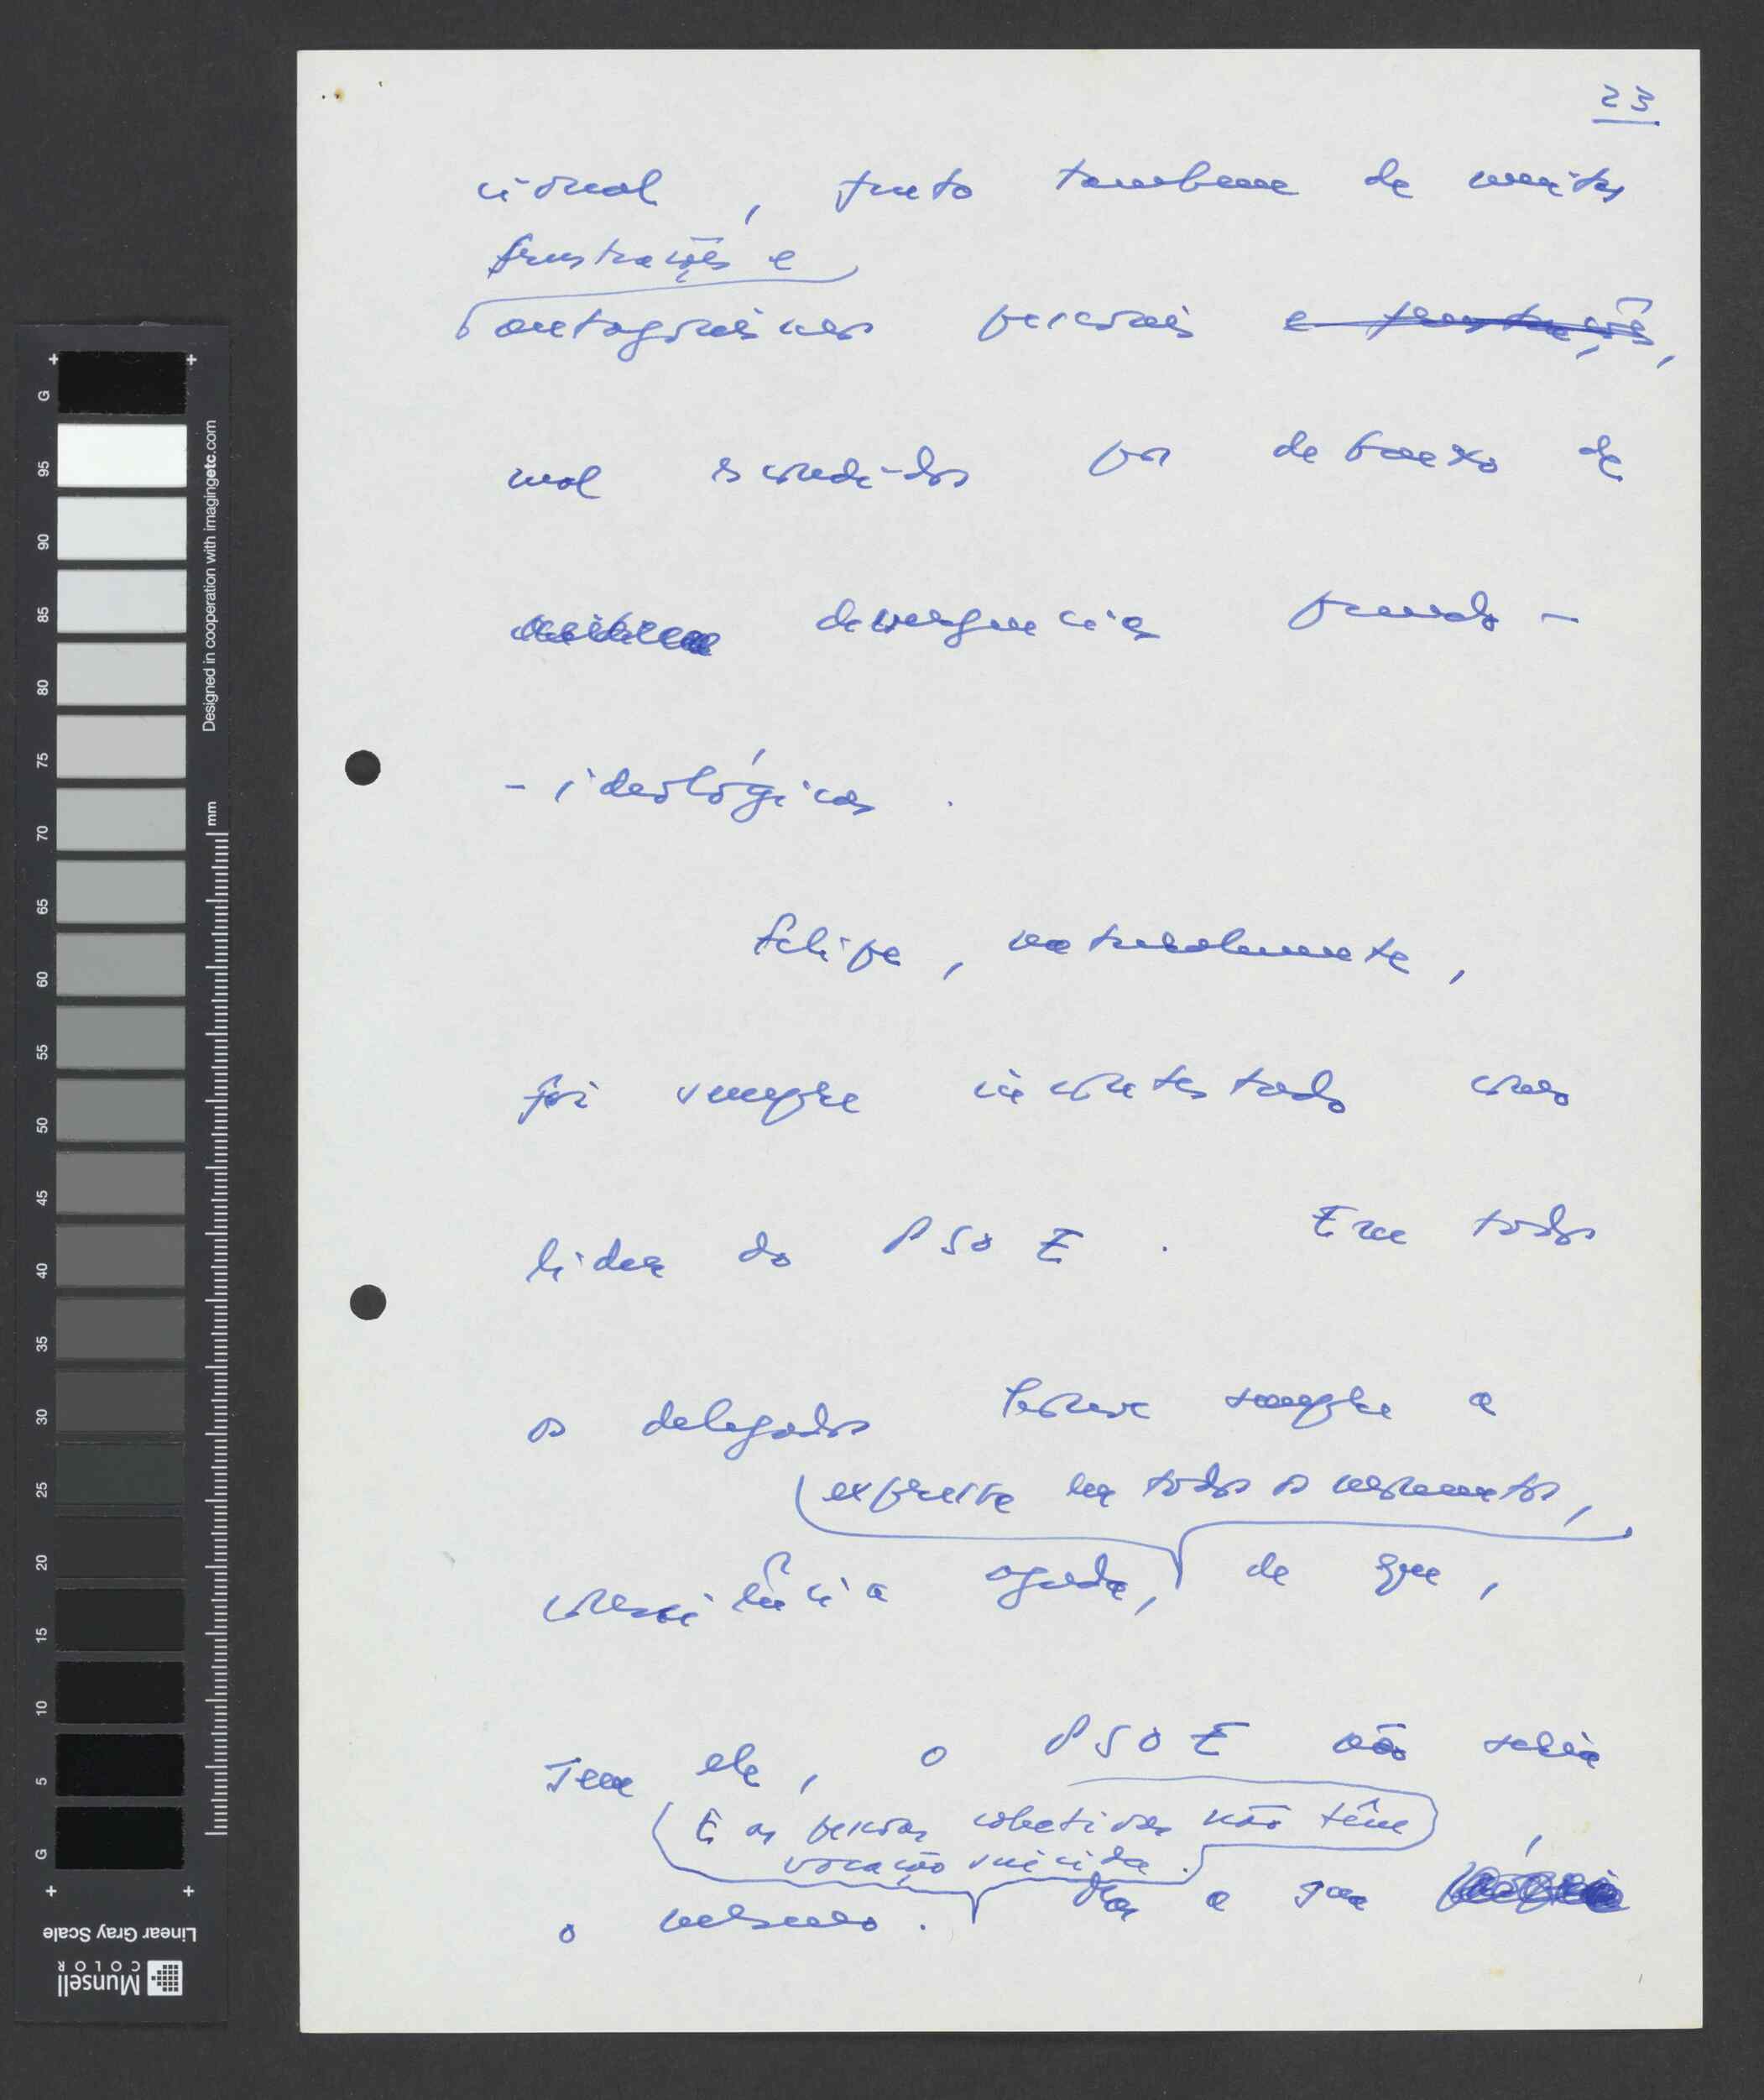 23
cional, fruto também de muitas
frustrações e
antagonismos pessoais e frustrações,
mal escondidos por debaixo de
divergências pseudo-
-ideológicas.
Felipe, naturalmente,
foi sempre incontestado como
líder do PSOE. Em todos
os delegados houve sempre a
expressa em todos os momentos,
consciência aguda, de que,
sem ele, o PSOE não seria
E as pessoas colectivas não têm
vocação suicida.
o mesmo. Mas a sua
G 95 90 85 80 75 70 65 60 55 50 45 40 35 30 25 20 15 10 5 G
Designed in cooperation with imagingetc.com
mm
Linear Gray Scale
Munsell
COLOR